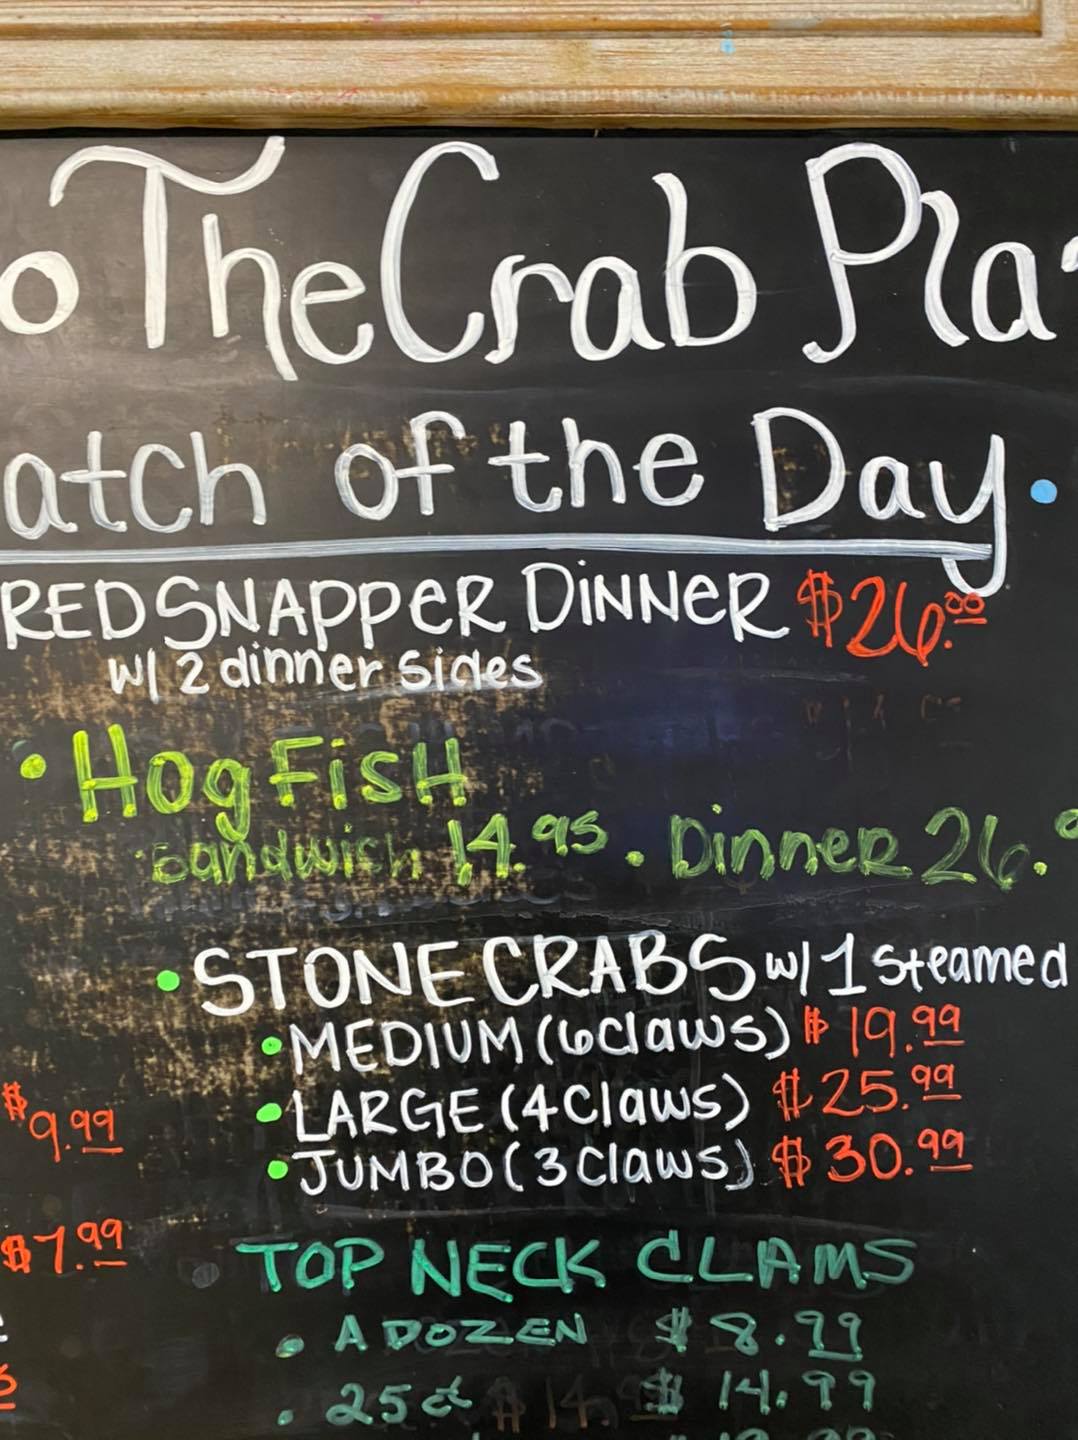 o The Crab Pla
atch of the Day.
RED SNAPPER DINNER $26.00
w/ 2 dinner sides
• HogFisH
Sandwich 14.95 . Dinner 26.
• STONE CRABS w/ 1 steamed
• MEDIUM (6 claws) $19.99
• LARGE (4 claws) $25.99
$9.99
• JUMBO (3 claws) $30.99
$7.99
TOP NECK CLAMS
• A DOZEN $8.99
• 25ct $14.99